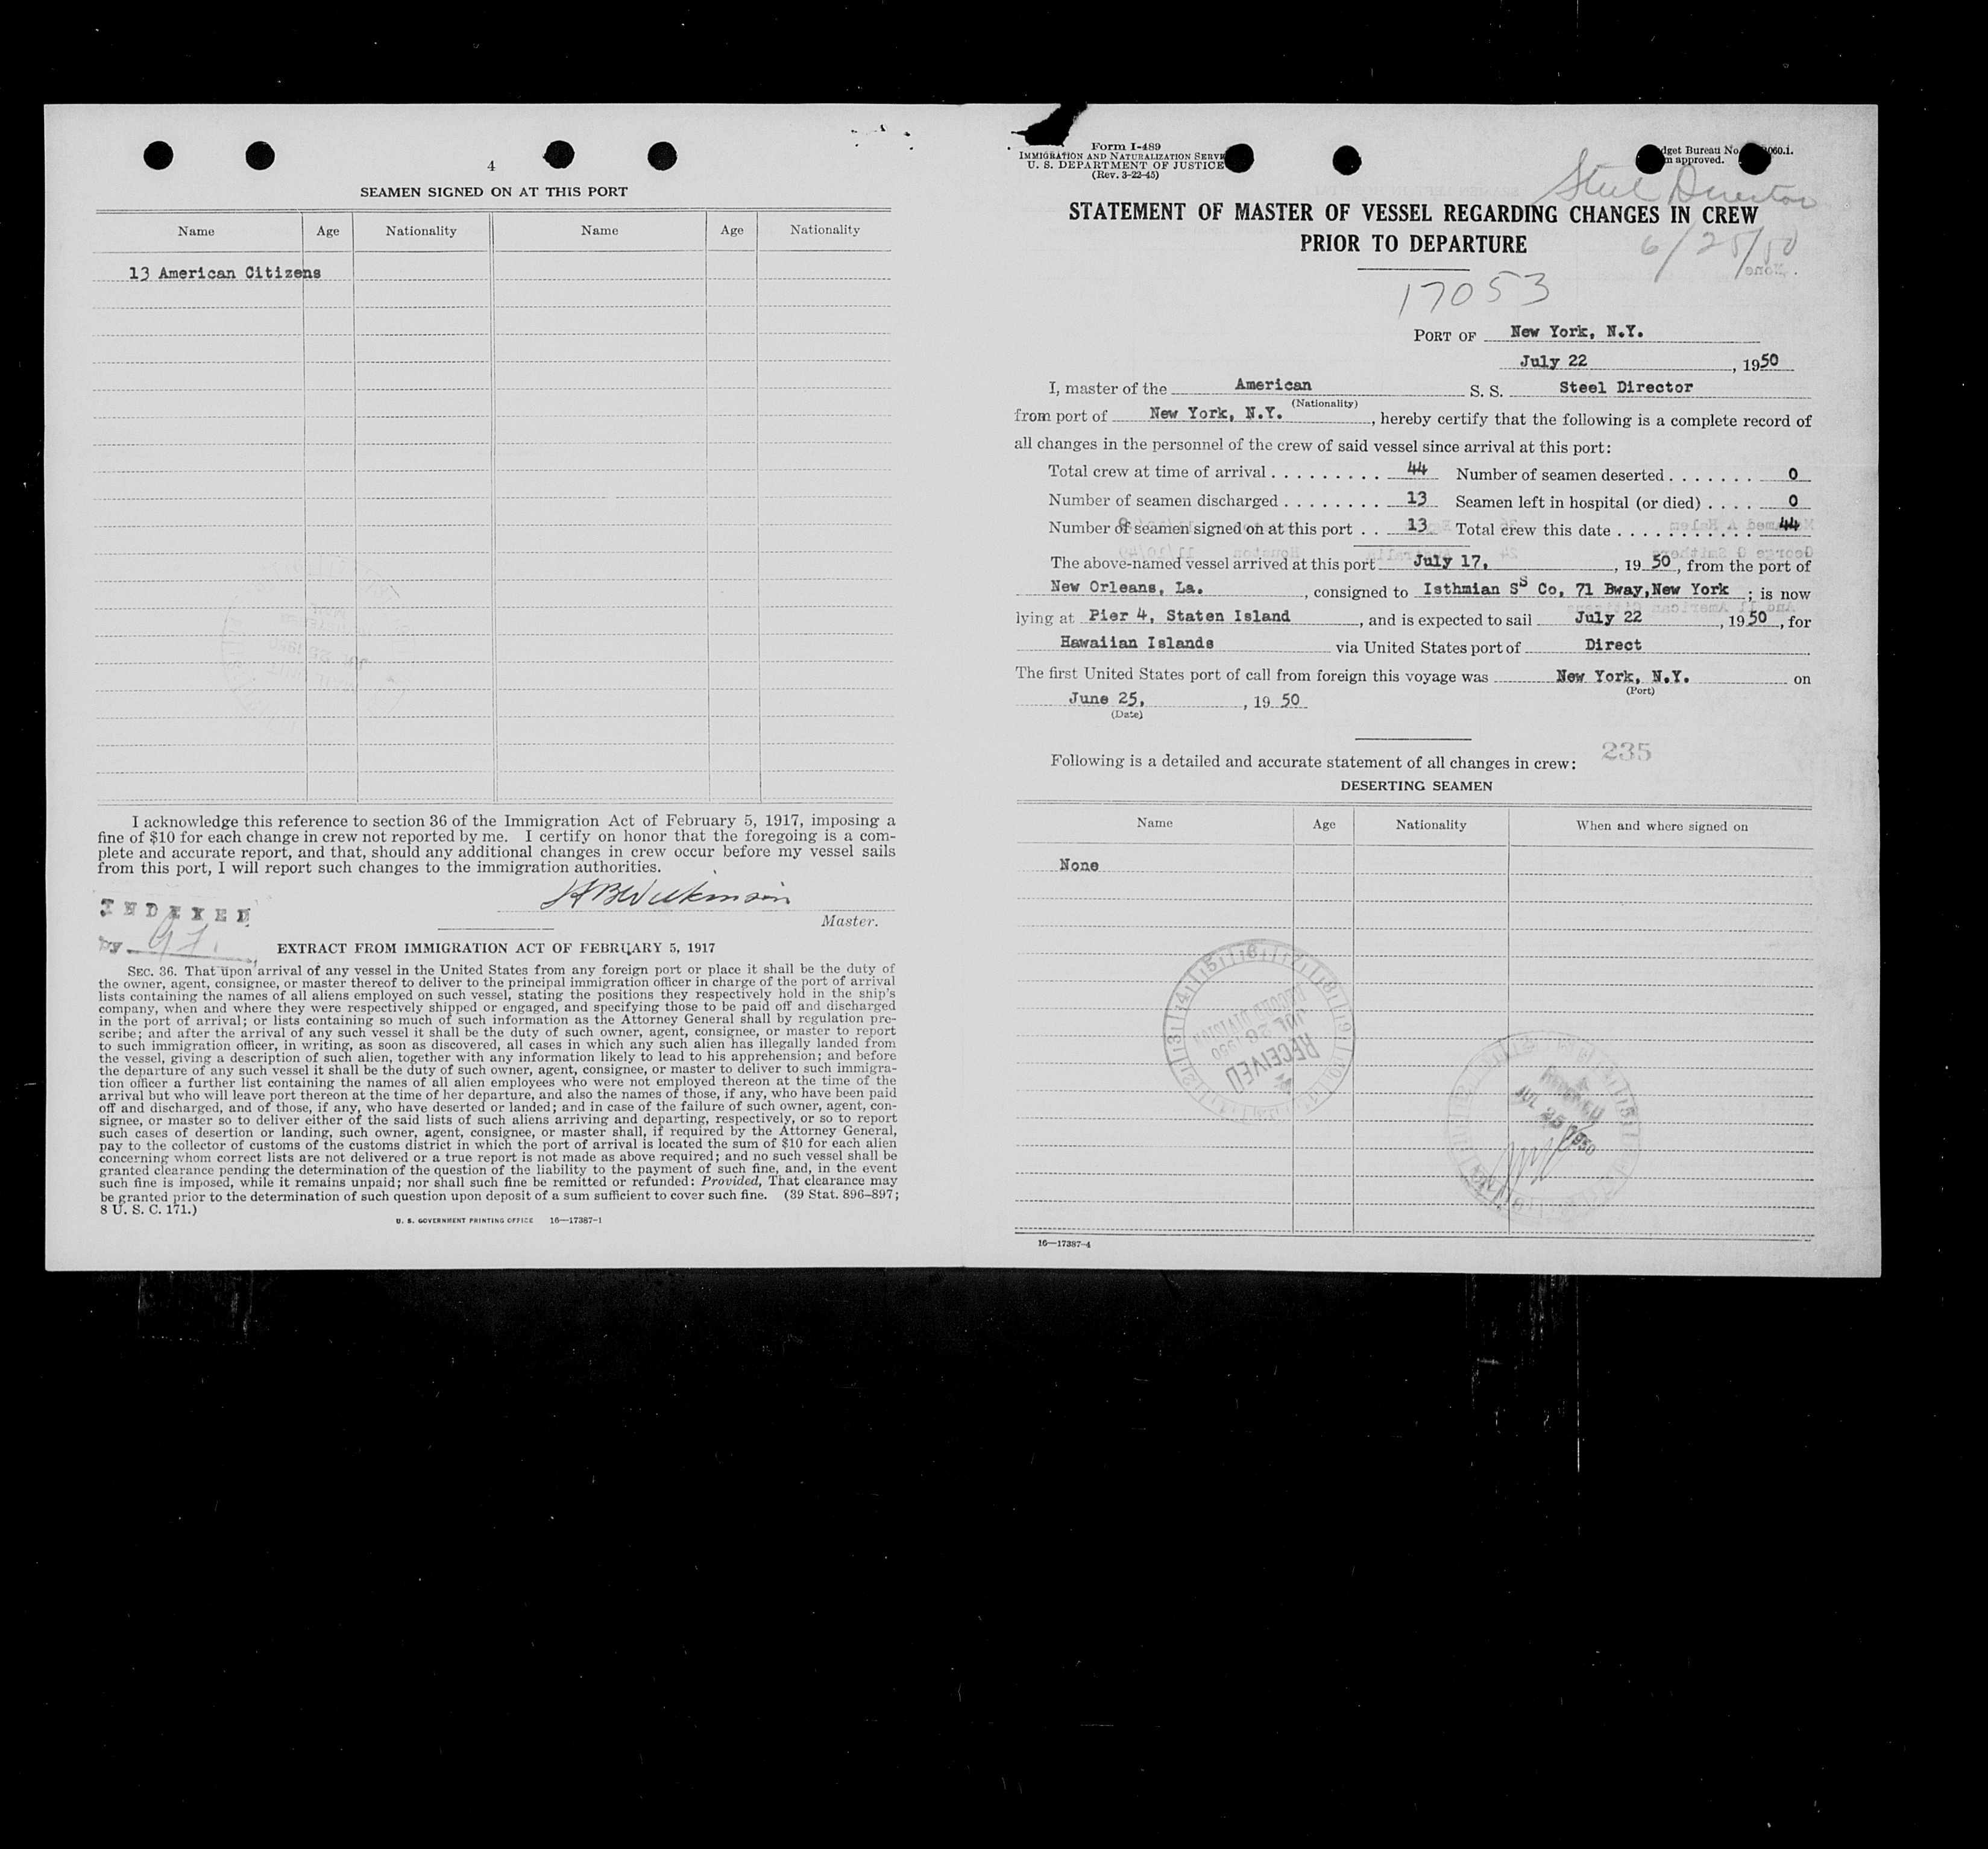 4
SEAMEN SIGNED ON AT THIS PORT
Name Age Nationality Name Age Nationality
13 American Citizens
I acknowledge this reference to section 36 of the Immigration Act of February 5, 1917, imposing a
fine of $10 for each change in crew not reported by me. I certify on honor that the foregoing is a com-
plete and accurate report, and that, should any additional changes in crew occur before my vessel sails
from this port, I will report such changes to the immigration authorities.
Master.
INDEXED
by
EXTRACT FROM IMMIGRATION ACT OF FEBRUARY 5, 1917
SEC. 36. That upon arrival of any vessel in the United States from any foreign port or place it shall be the duty of
the owner, agent, consignee, or master thereof to deliver to the principal immigration officer in charge of the port of arrival
lists containing the names of all aliens employed on such vessel, stating the positions they respectively hold in the ship's
company, when and where they were respectively shipped or engaged, and specifying those to be paid off and discharged
in the port of arrival; or lists containing so much of such information as the Attorney General shall by regulation pre-
scribe; and after the arrival of any such vessel it shall be the duty of such owner, agent, consignee, or master to report
to such immigration officer, in writing, as soon as discovered, all cases in which any such alien has illegally landed from
the vessel, giving a description of such alien, together with any information likely to lead to his apprehension; and before
the departure of any such vessel it shall be the duty of such owner, agent, consignee, or master to deliver to such immigra-
tion officer a further list containing the names of all alien employees who were not employed thereon at the time of the
arrival but who will leave port thereon at the time of her departure, and also the names of those, if any, who have been paid
off and discharged, and of those, if any, who have deserted or landed; and in case of the failure of such owner, agent, con-
signee, or master so to deliver either of the said lists of such aliens arriving and departing, respectively, or so to report
such cases of desertion or landing, such owner, agent, consignee, or master shall, if required by the Attorney General,
pay to the collector of customs of the customs district in which the port of arrival is located the sum of $10 for each alien
concerning whom correct lists are not delivered or a true report is not made as above required; and no such vessel shall be
granted clearance pending the determination of the question of the liability to the payment of such fine, and, in the event
such fine is imposed, while it remains unpaid; nor shall such fine be remitted or refunded: Provided, That clearance may
be granted prior to the determination of such question upon deposit of a sum sufficient to cover such fine. (39 Stat. 896–897;
8 U. S. C. 171.)
U. S. GOVERNMENT PRINTING OFFICE 16—17387-1
Form I-489
IMMIGRATION AND NATURALIZATION SERV
U. S. DEPARTMENT OF JUSTICE
(Rev. 3-22-45)
dget Bureau No. 060.1.
m approved.
Steel Director
STATEMENT OF MASTER OF VESSEL REGARDING CHANGES IN CREW
PRIOR TO DEPARTURE
6/25/50
17053
PORT OF New York, N.Y.
July 22, 1950
I, master of the American S. S. Steel Director
(Nationality)
from port of New York, N.Y., hereby certify that the following is a complete record of
all changes in the personnel of the crew of said vessel since arrival at this port:
Total crew at time of arrival . . . . . . . . . 44 Number of seamen deserted . . . . . . . 0
Number of seamen discharged . . . . . . . . 13 Seamen left in hospital (or died) . . . . 0
Number of seamen signed on at this port . . 13 Total crew this date . . . . . . . . . . . 44
The above-named vessel arrived at this port July 17, , 19 50, from the port of
New Orleans, La., consigned to Isthmian SS Co, 71 Bway, New York ; is now
lying at Pier 4, Staten Island, and is expected to sail July 22, 1950, for
Hawaiian Islands via United States port of Direct
The first United States port of call from foreign this voyage was New York, N.Y. on
(Port)
June 25, , 19 50
(Date)
235
Following is a detailed and accurate statement of all changes in crew:
DESERTING SEAMEN
Name Age Nationality When and where signed on
None
RECEIVED
JUL 26 1950
RECORD DIVISION
JUL 25 1950
16—17387-4